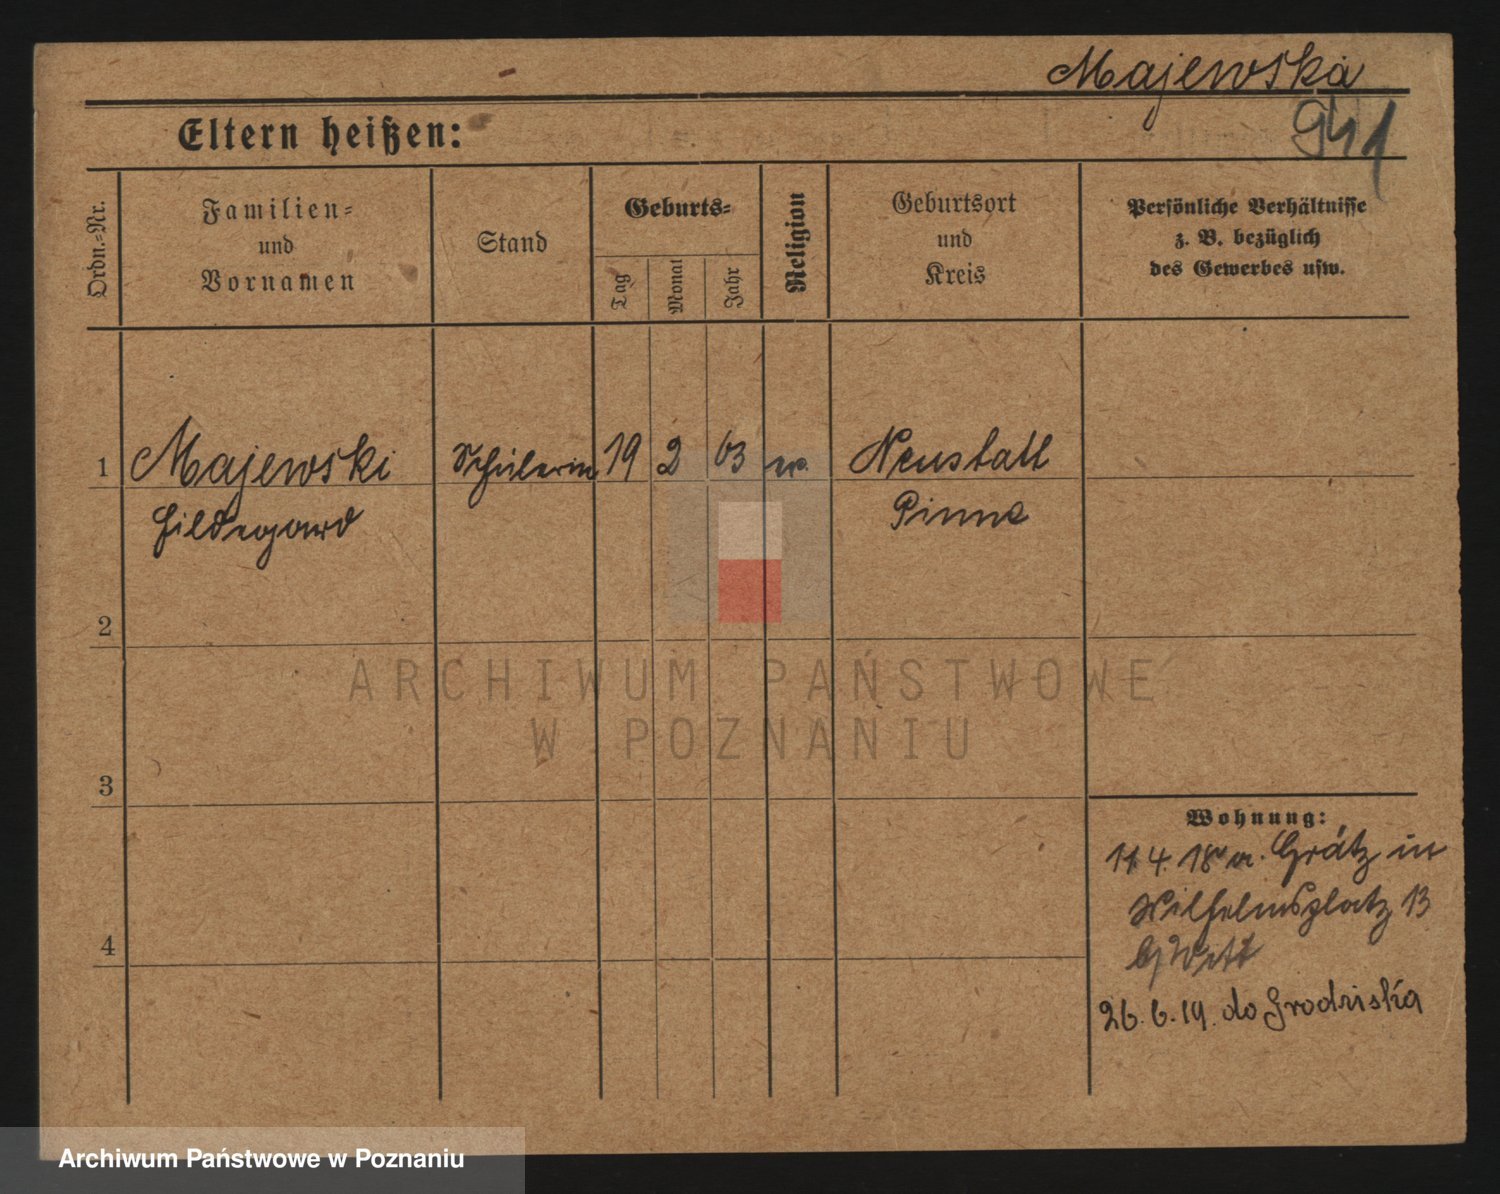 Majewska
941
Eltern heißen:
Ordn.=Nr.
Familien=
und
Vornamen
Stand
Geburts=
Tag
Monat
Jahr
Religion
Geburtsort
und
Kreis
Persönliche Verhältnisse
z. B. bezüglich
des Gewerbes usw.
1 Majewski Schülerin 19 2 03 ev. Neustadt
Hildegard Pinne
2
3
4
Wohnung:
11 4. 18 v. Grätz in
Wilhelmsplatz 13
b/Witt
26. 6. 19. do Grodziska
ARCHIWUM PAŃSTWOWE
W POZNANIU
Archiwum Państwowe w Poznaniu